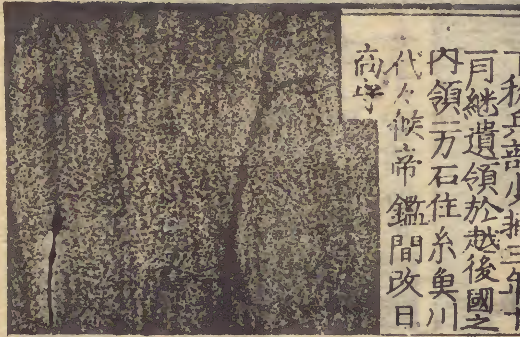 兵部少輔三年十
一月継遺領於越後國之
内領一万石住糸魚川
代々候帝鑑間改日
向守